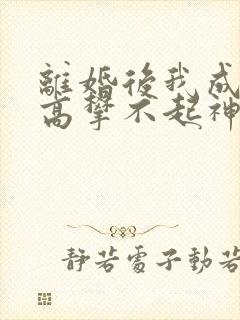 離婚後我成
高攀不起神
靜若電子動若